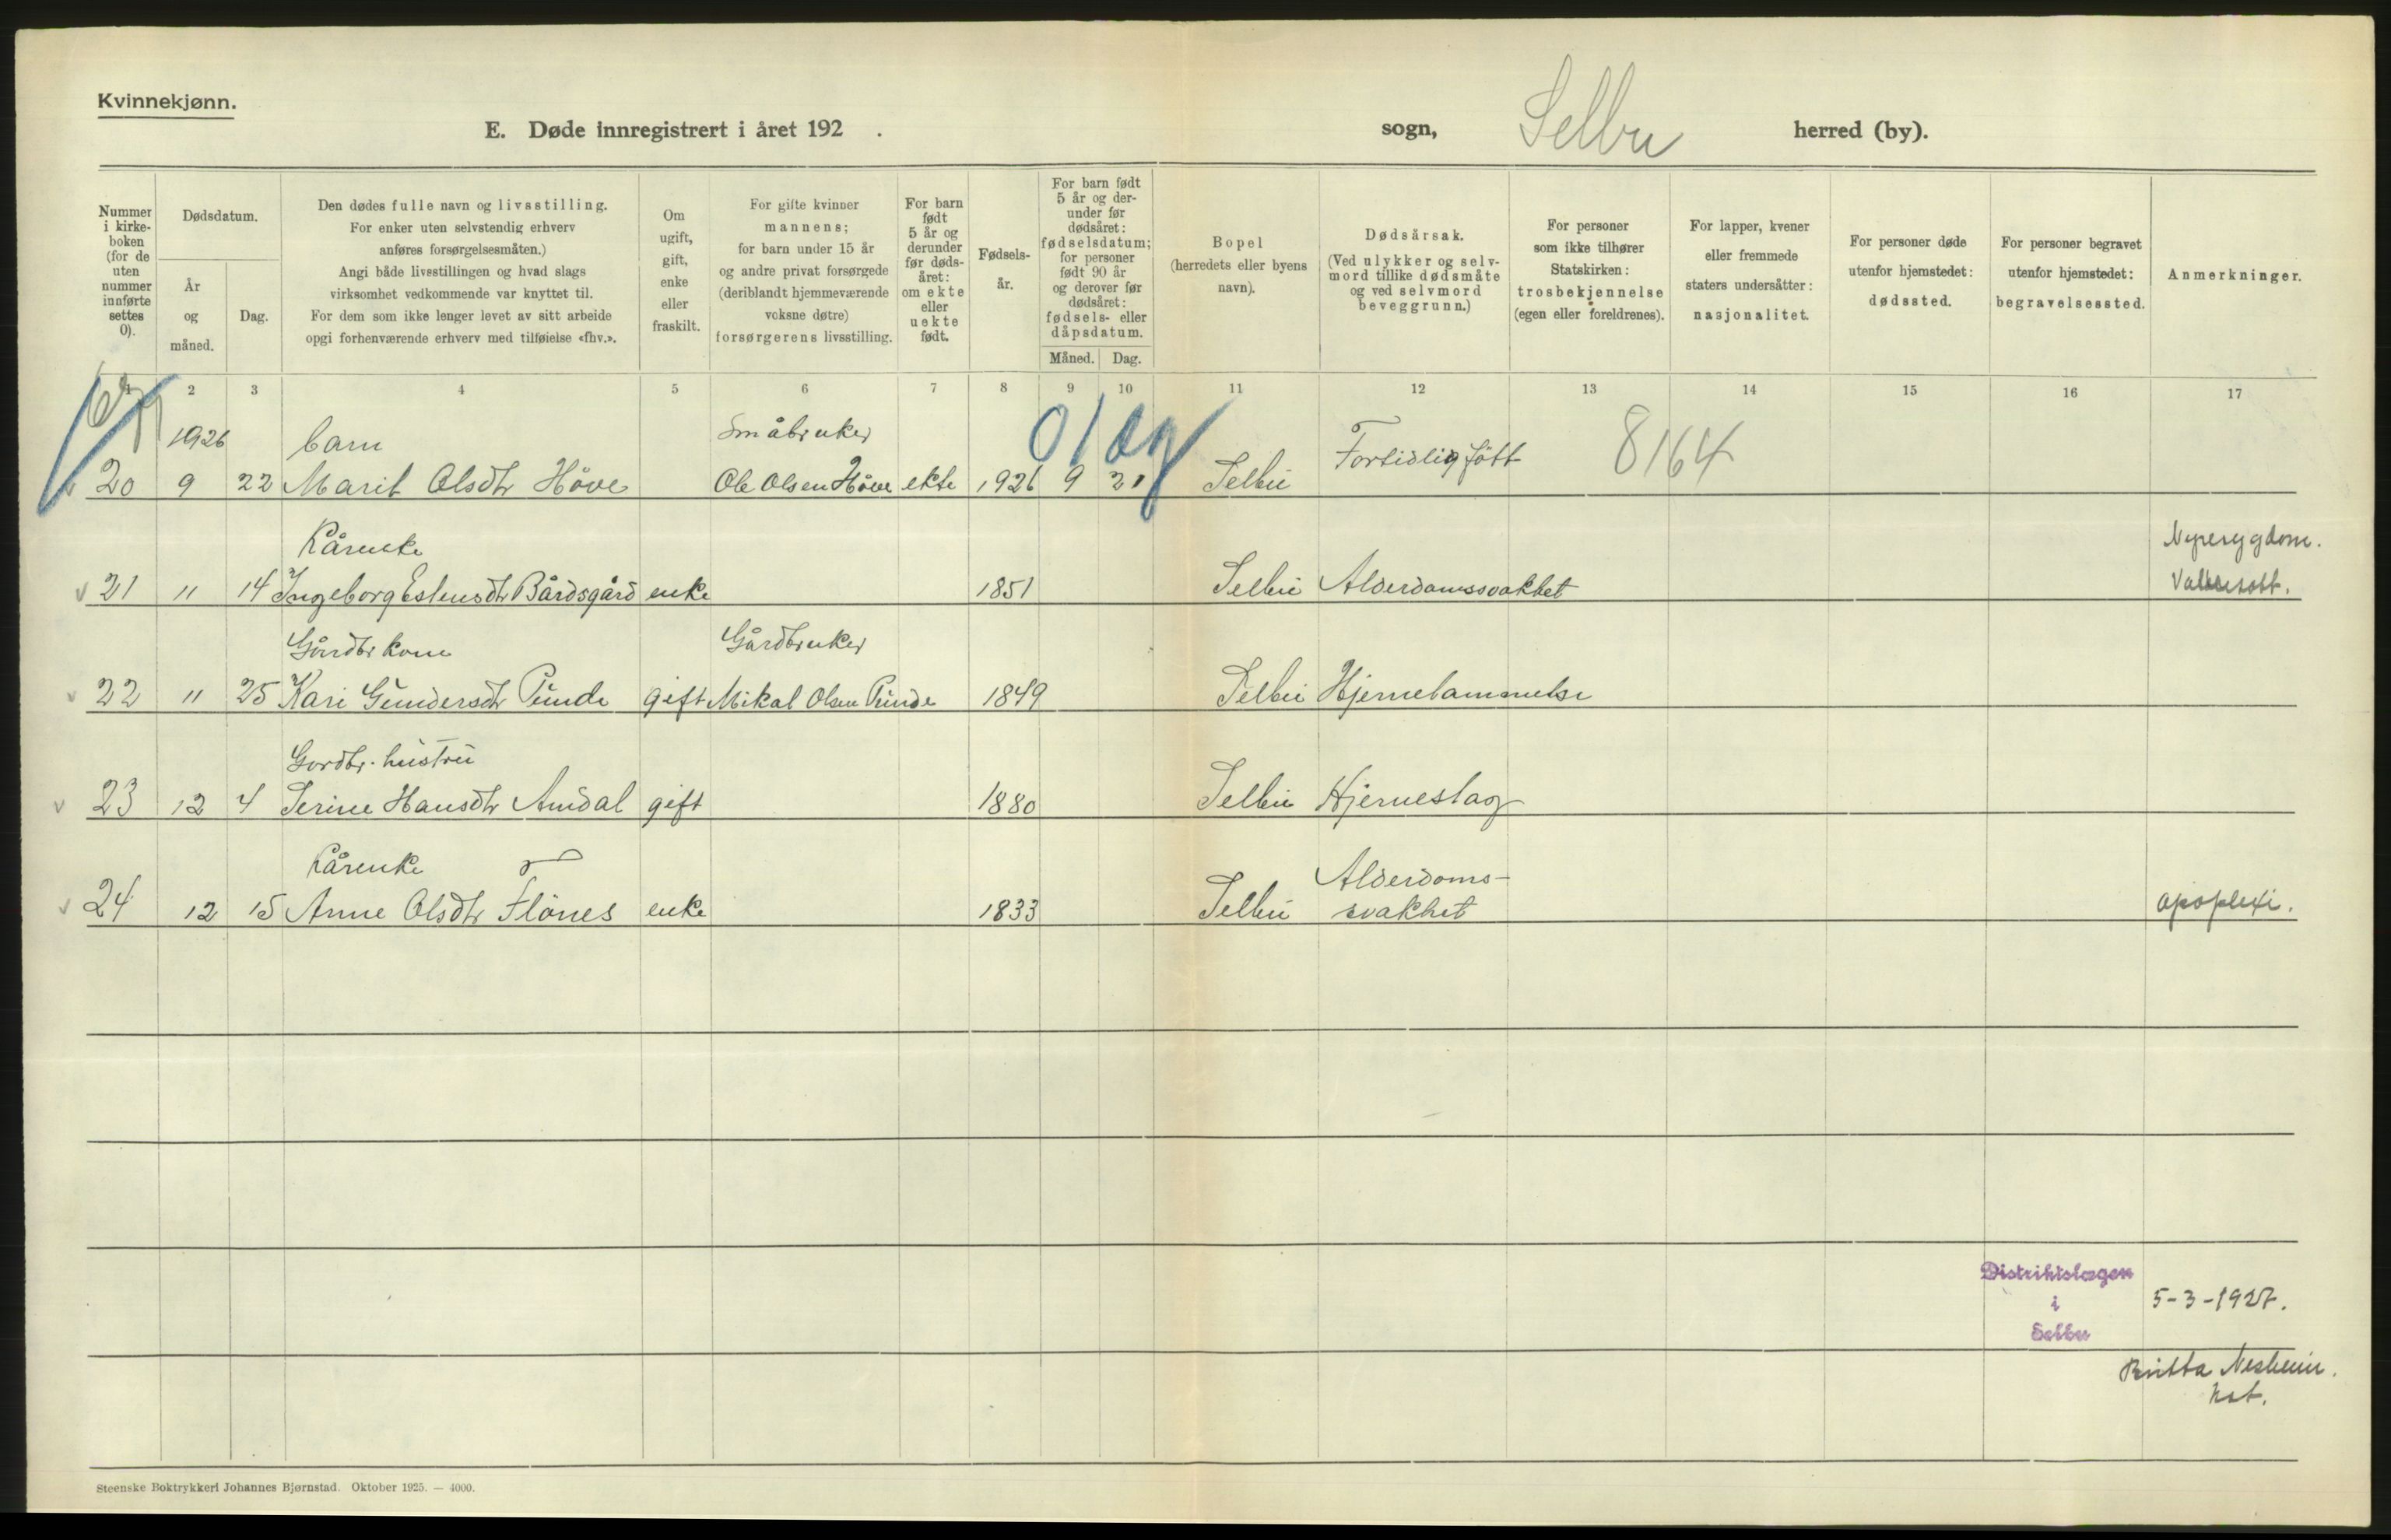 Kvinnekjønn.
E. Døde innregistrert i året 192 .
sogn, Selbu herred (by).
Nummer
i kirke-
boken
(for de
uten
nummer
innførte
settes
0).
Dødsdatum.
År
og
måned.
Dag.
Den dødes fulle navn og livsstilling.
For enker uten selvstendig erhverv
anføres forsørgelsesmåten.)
Angi både livsstillingen og hvad slags
virksomhet vedkommende var knyttet til.
For dem som ikke lenger levet av sitt arbeide
opgi forhenværende erhverv med tilføielse «fhv.».
Om
ugift,
gift,
enke
eller
fraskilt.
For gifte kvinner
mannens;
for barn under 15 år
og andre privat forsørgede
(deriblandt hjemmeværende
voksne døtre)
forsørgerens livsstilling.
For barn
født
5 år og
derunder
før døds-
året:
om ekte
eller
uekte
født.
Fødsels-
år.
For barn født
5 år og der-
under før
dødsåret:
fødselsdatum;
for personer
født 90 år
og derover før
dødsåret:
fødsels- eller
dåpsdatum.
Måned. Dag.
Bopel
(herredets eller byens
navn).
Dødsårsak.
(Ved ulykker og selv-
mord tillike dødsmåte
og ved selvmord
beveggrunn.)
For personer
som ikke tilhører
Statskirken:
trosbekjennelse
(egen eller foreldrenes).
For lapper, kvener
eller fremmede
staters undersåtter:
nasjonalitet.
For personer døde
utenfor hjemstedet:
dødssted.
For personer begravet
utenfor hjemstedet:
begravelsessted.
Anmerkninger.
1 2 3 4 5 6 7 8 9 10 11 12 13 14 15 16 17
1926 barn Småbruker 8164
20 9 22 Marit Olsdtr Höve Ole Olsen Höve ekte 1926 9 21 Selbu Fortidlig fött
Kårenke Nyresygdom.
21 11 14 Ingeborg Estensdtr Bårdsgård enke 1851 Selbu Alderdomssvakhet Vattersott.
Gårdbr kone Gårdbruker
22 11 25 Kari Gundersdtr Runde gift Mikal Olsen Runde 1849 Selbu Hjernelammelse
Gardbr. hustru
23 12 4 Serine Hansdtr Amdal gift 1880 Selbu Hjerneslag
Kårenke Alderdoms-
24 12 15 Anne Olsdtr Flönes enke 1833 Selbu svakhet apoplexi.
Distriktslægen
i
Selbu
5-3-1927.
Britta Nesheim.
kst.
Steenske Boktrykkeri Johannes Bjørnstad. Oktober 1925. — 4000.